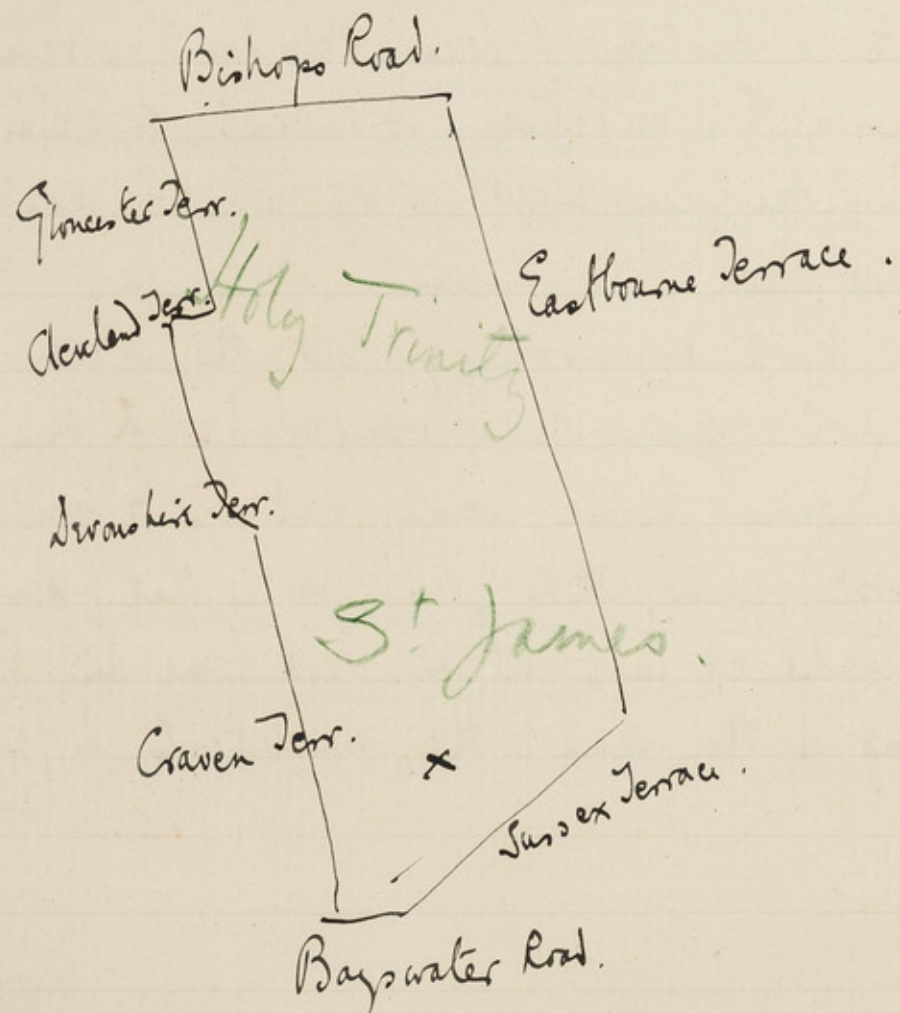 Bishops Road.
Gloucester Terr.
Holy Trinity
Eastbourne Terrace.
Cleveland Terr.
Devonshire Terr.
St James.
Craven Terr.
x
Sussex Terrace.
Bayswater Road.